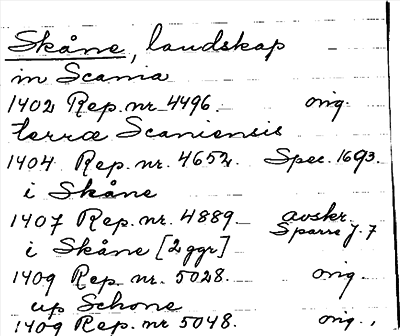 Skåne, landskap
in Scania
1402 Rep. nr. 4496. orig.
terræ Scaniensis
1404 Rep. nr. 4652. Spec. 1693.
i Skåne
1407 Rep. nr. 4889. avskr. Sparre J. 7
i Skåne [2 ggr]
1409 Rep. nr. 5028. orig.
up Schone
1409 Rep. nr. 5048. orig.